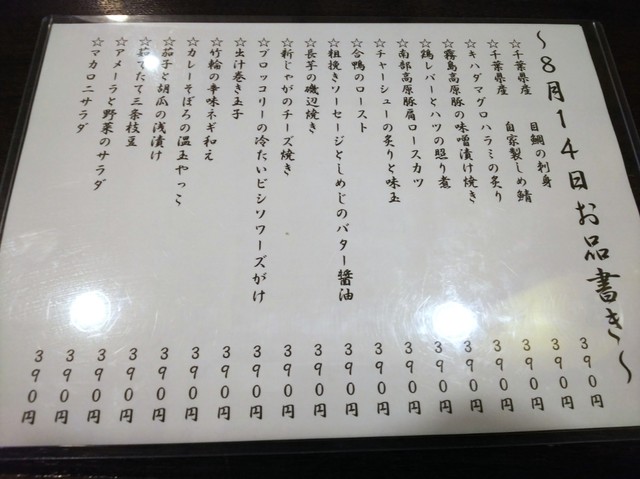 ～8月14日お品書き～
☆千葉県産　目鯛の刺身　390円
☆千葉県産　自家製しめ鯖　390円
☆キハダマグロハラミの炙り　390円
☆霧島高原豚の味噌漬け焼き　390円
☆鶏レバーとハツの照り煮　390円
☆南部高原豚肩ロースカツ　390円
☆チャーシューの炙りと味玉　390円
☆合鴨のロースト　390円
☆粗挽きソーセージとしめじのバター醤油　390円
☆長芋の磯辺焼き　390円
☆新じゃがのチーズ焼き　390円
☆ブロッコリーの冷たいビシソワーズがけ　390円
☆出汁巻き玉子　390円
☆竹輪の辛味ネギ和え　390円
☆カレーそぼろの温玉やっこ　390円
☆茄子と胡瓜の浅漬け　390円
☆茹でたて三条枝豆　390円
☆アメーラと野菜のサラダ　390円
☆マカロニサラダ　390円